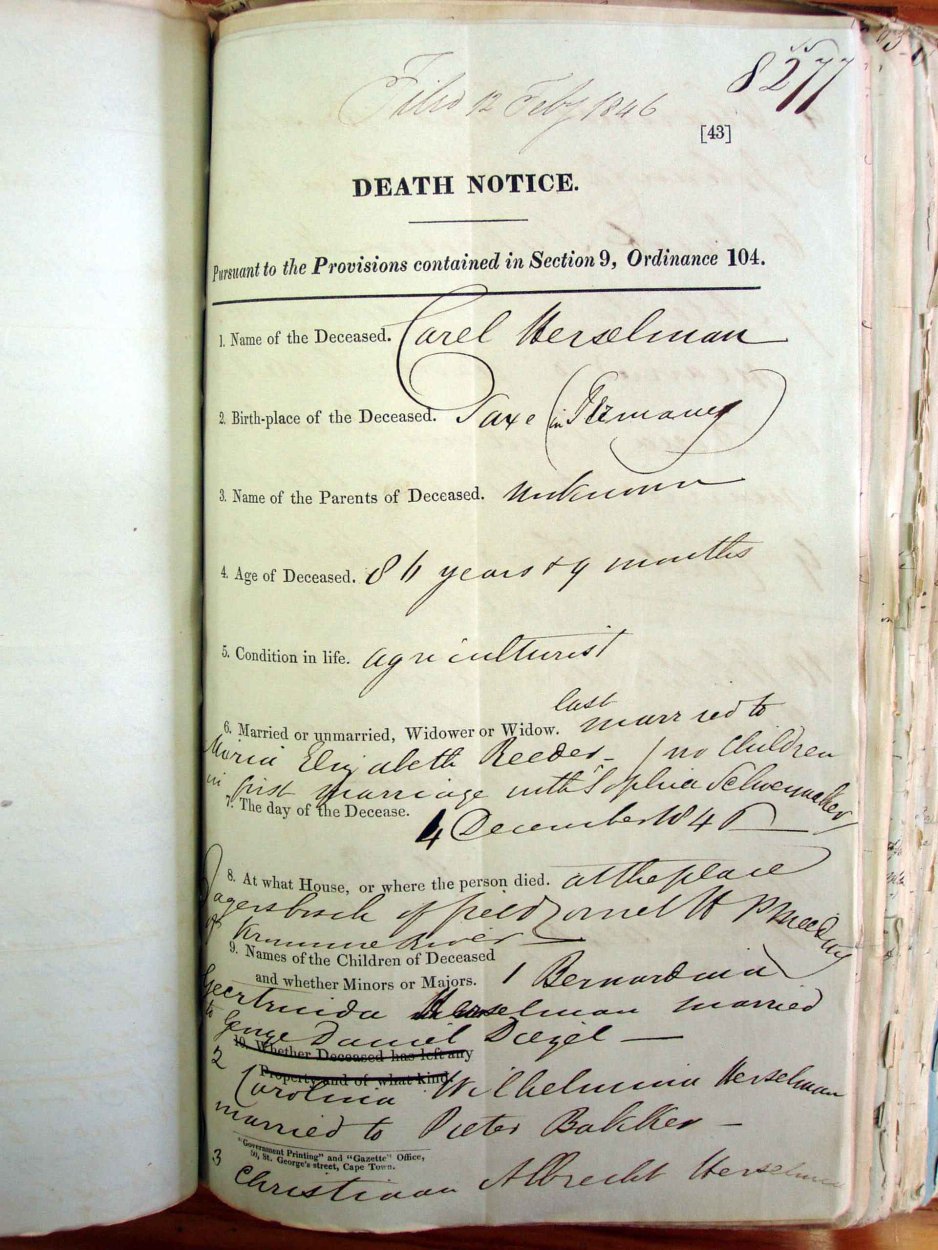 8277
Filed 12 Feby 1846
[43]
DEATH NOTICE.
Pursuant to the Provisions contained in Section 9, Ordinance 104.
1. Name of the Deceased. Carel Herselman
2. Birth-place of the Deceased. Saxe (in Germany)
3. Name of the Parents of Deceased. unknown
4. Age of Deceased. 86 years & 9 months
5. Condition in life. agriculturist
6. Married or unmarried, Widower or Widow. last married to
Maria Elizabeth Reeder - (no Children
in first marriage with Sophia Schoemaker)
7. The day of the Decease.
4 December 184
8. At what House, or where the person died. at the place
Jagersbosch of field Cornet H P
of Kromme River
9. Names of the Children of Deceased
and whether Minors or Majors. 1 Bernardina
Geertruida Herselman married
to George Daniel Diegel —
10. Whether Deceased has left any
Property and of what kind.
2 Carolina Wilhelmina Herselman
married to Pieter Bakker -
"Government Printing" and "Gazette" Office,
St. George's street, Cape Town.
3 Christiaan Albrecht Herselman